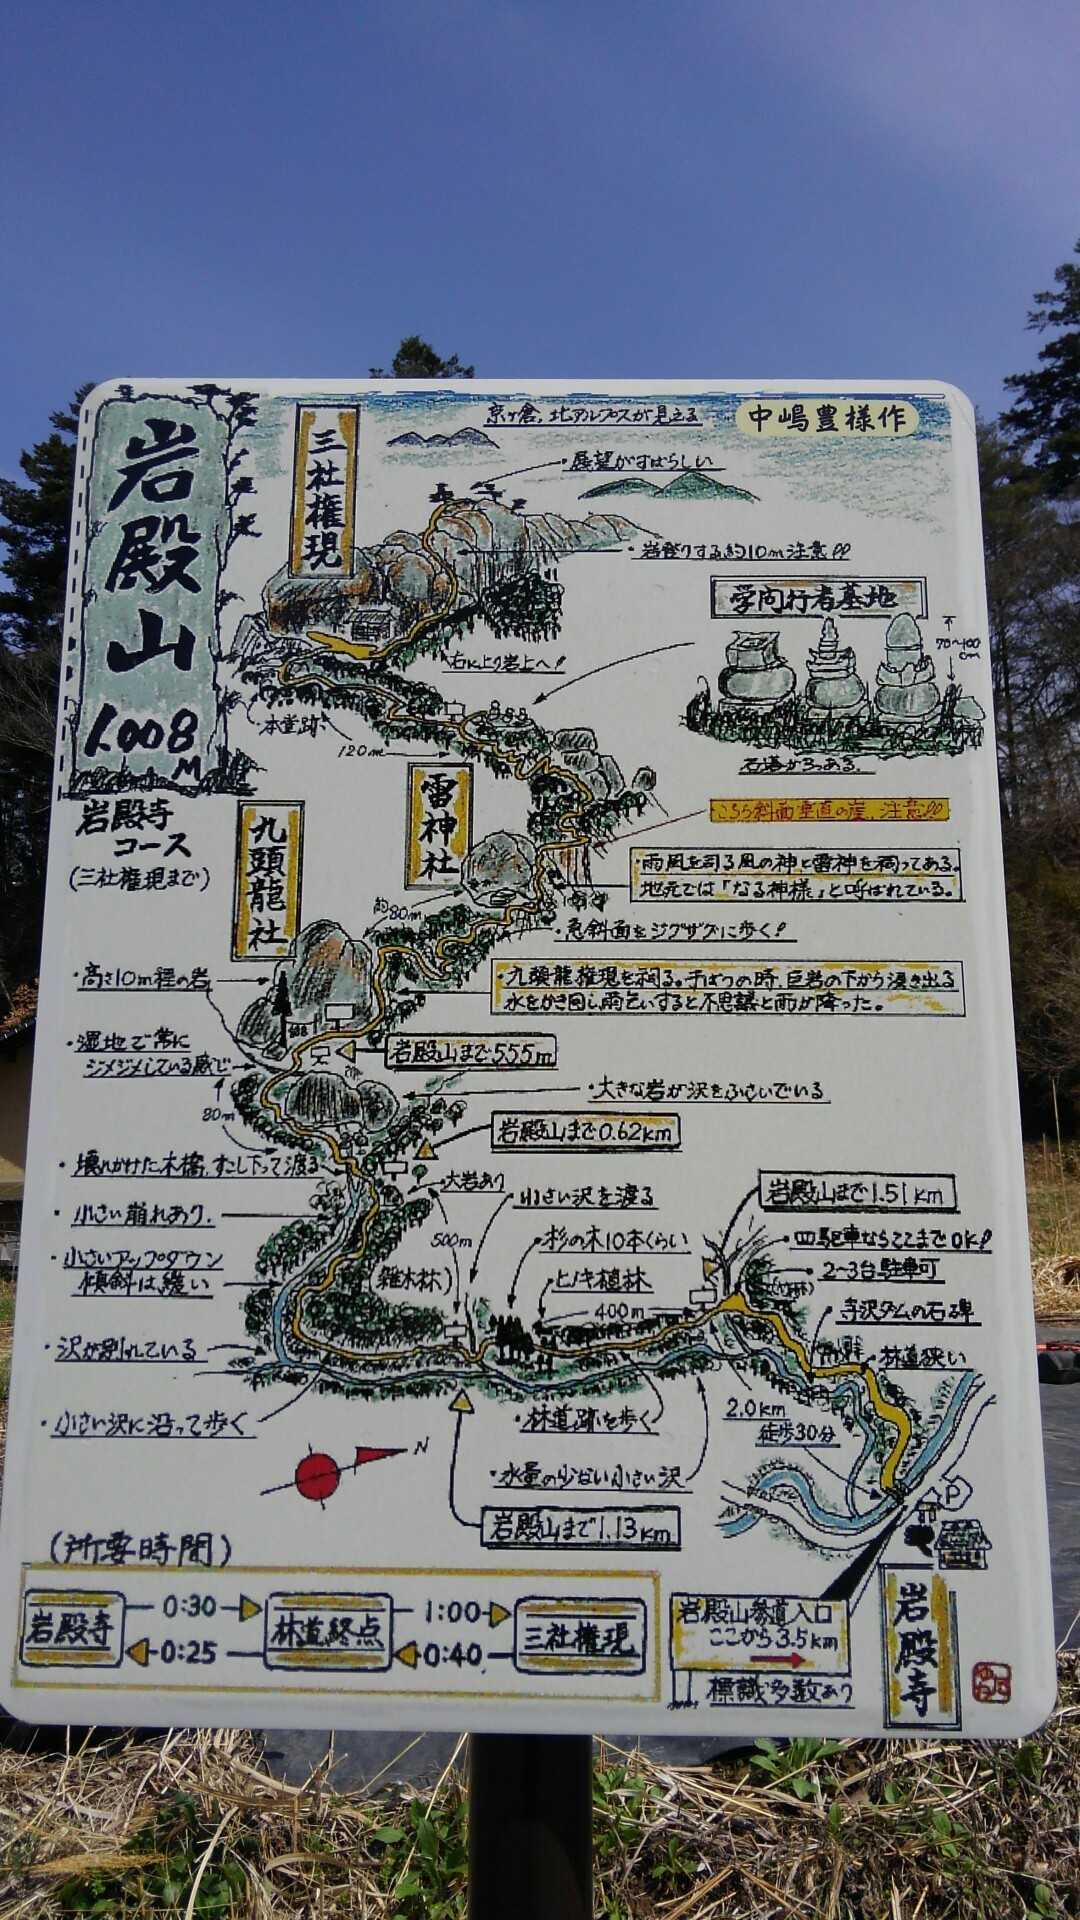 岩殿山
1.008M
岩殿寺
コース
(三社権現まで)
京ヶ倉、北アルプスが見える
中嶋豊様作
三社権現
・展望がすばらしい
・岩登りする約10m注意!!
学問行者墓地
70〜100cm
石塔が3つある。
右に上り岩上へ!
本堂跡
120m
雷神社
こちら斜面垂直の崖、注意!!
・雨風を司る風の神と雷神を祠ってある。
地元では「なる神様」と呼ばれている。
約80m
・急斜面をジグザグに歩く!
九頭龍社
・九頭龍権現を祠る。干ばつの時、巨岩の下から湧き出る
水をかき回し雨乞いすると不思議と雨が降った。
・高さ10m程の岩
・湿地で常に
ジメジメしている感じ
岩殿山まで555m
・大きな岩が沢をふさいでいる
80m
岩殿山まで0.62km
・壊れかけた木橋、すこし下って渡る
・大岩あり
・小さい沢を渡る
岩殿山まで1.51km
・小さい崩れあり、
500m
・杉の木10本くらい
・四駆車ならここまでOK!
2〜3台駐車可
・小さいアップダウン
傾斜は緩い
(雑木林)
・ヒノキ植林
400m
・寺沢ダムの石碑
・沢が別れている
・林道狭い
・小さい沢に沿って歩く
・林道跡を歩く
2.0km
徒歩30分
N
・水量の少ない小さい沢
P
岩殿山まで1.13km
(所要時間)
岩殿寺
0:30
0:25
林道終点
1:00
0:40
三社権現
岩殿山参道入口
ここから3.5km
標識多数あり
岩殿寺